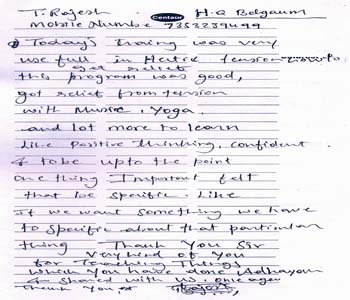 T. Rajesh Centaur H.Q Belgaum
Mobile Numbe 7353239499
Today's traing was very
use full in Hectic tension
get relief
this program was good,
got relief from tension
with Music, Yoga
and lot more to learn
Like Positive Thinking, confident
& to be upto the point
one thing Important felt
that be specific Like
If we want something we have
to specific about that particular
thing Thank You Sir
very kind of you
for Teaching Things
which You have done Adhayan
& shared with us, once again
Thank You,